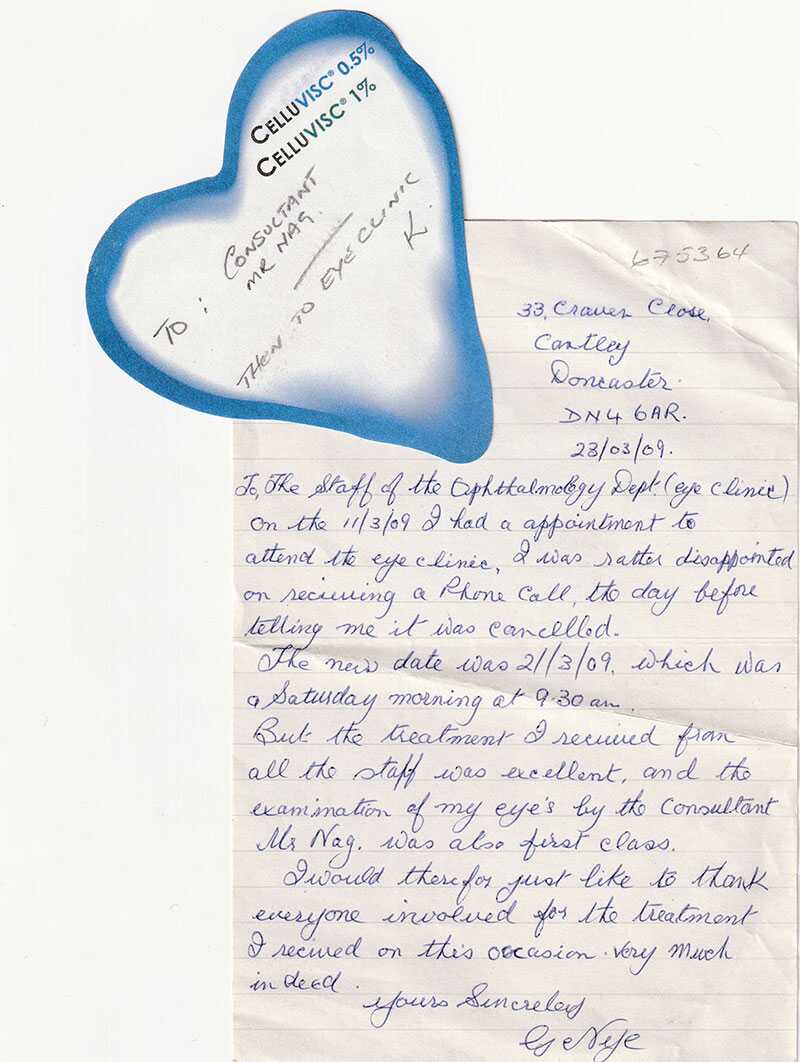 CELLUVISC® 0.5%
CELLUVISC® 1%
TO : CONSULTANT
MR NAG.
THEN TO EYE CLINIC
K.
675364
33, Craven Close,
Cantley
Doncaster.
DN4 6AR.
23/03/09.
To, The Staff of the Ophthalmology Dept. (eye clinic)
on the 11/3/09 I had a appointment to
attend the eye clinic, I was ratter disappointed
on recieving a Phone Call, the day before
telling me it was cancelled.
The new date was 21/3/09, which was
a Saturday morning at 9.30 am.
But the treatment I recieved from
all the staff was excellent, and the
examination of my eye's by the Consultant
Mr Nag. was also first class.
I would therefor just like to thank
everyone involved for the treatment
I recived on this occasion. very much
indeed.
Yours Sincreley